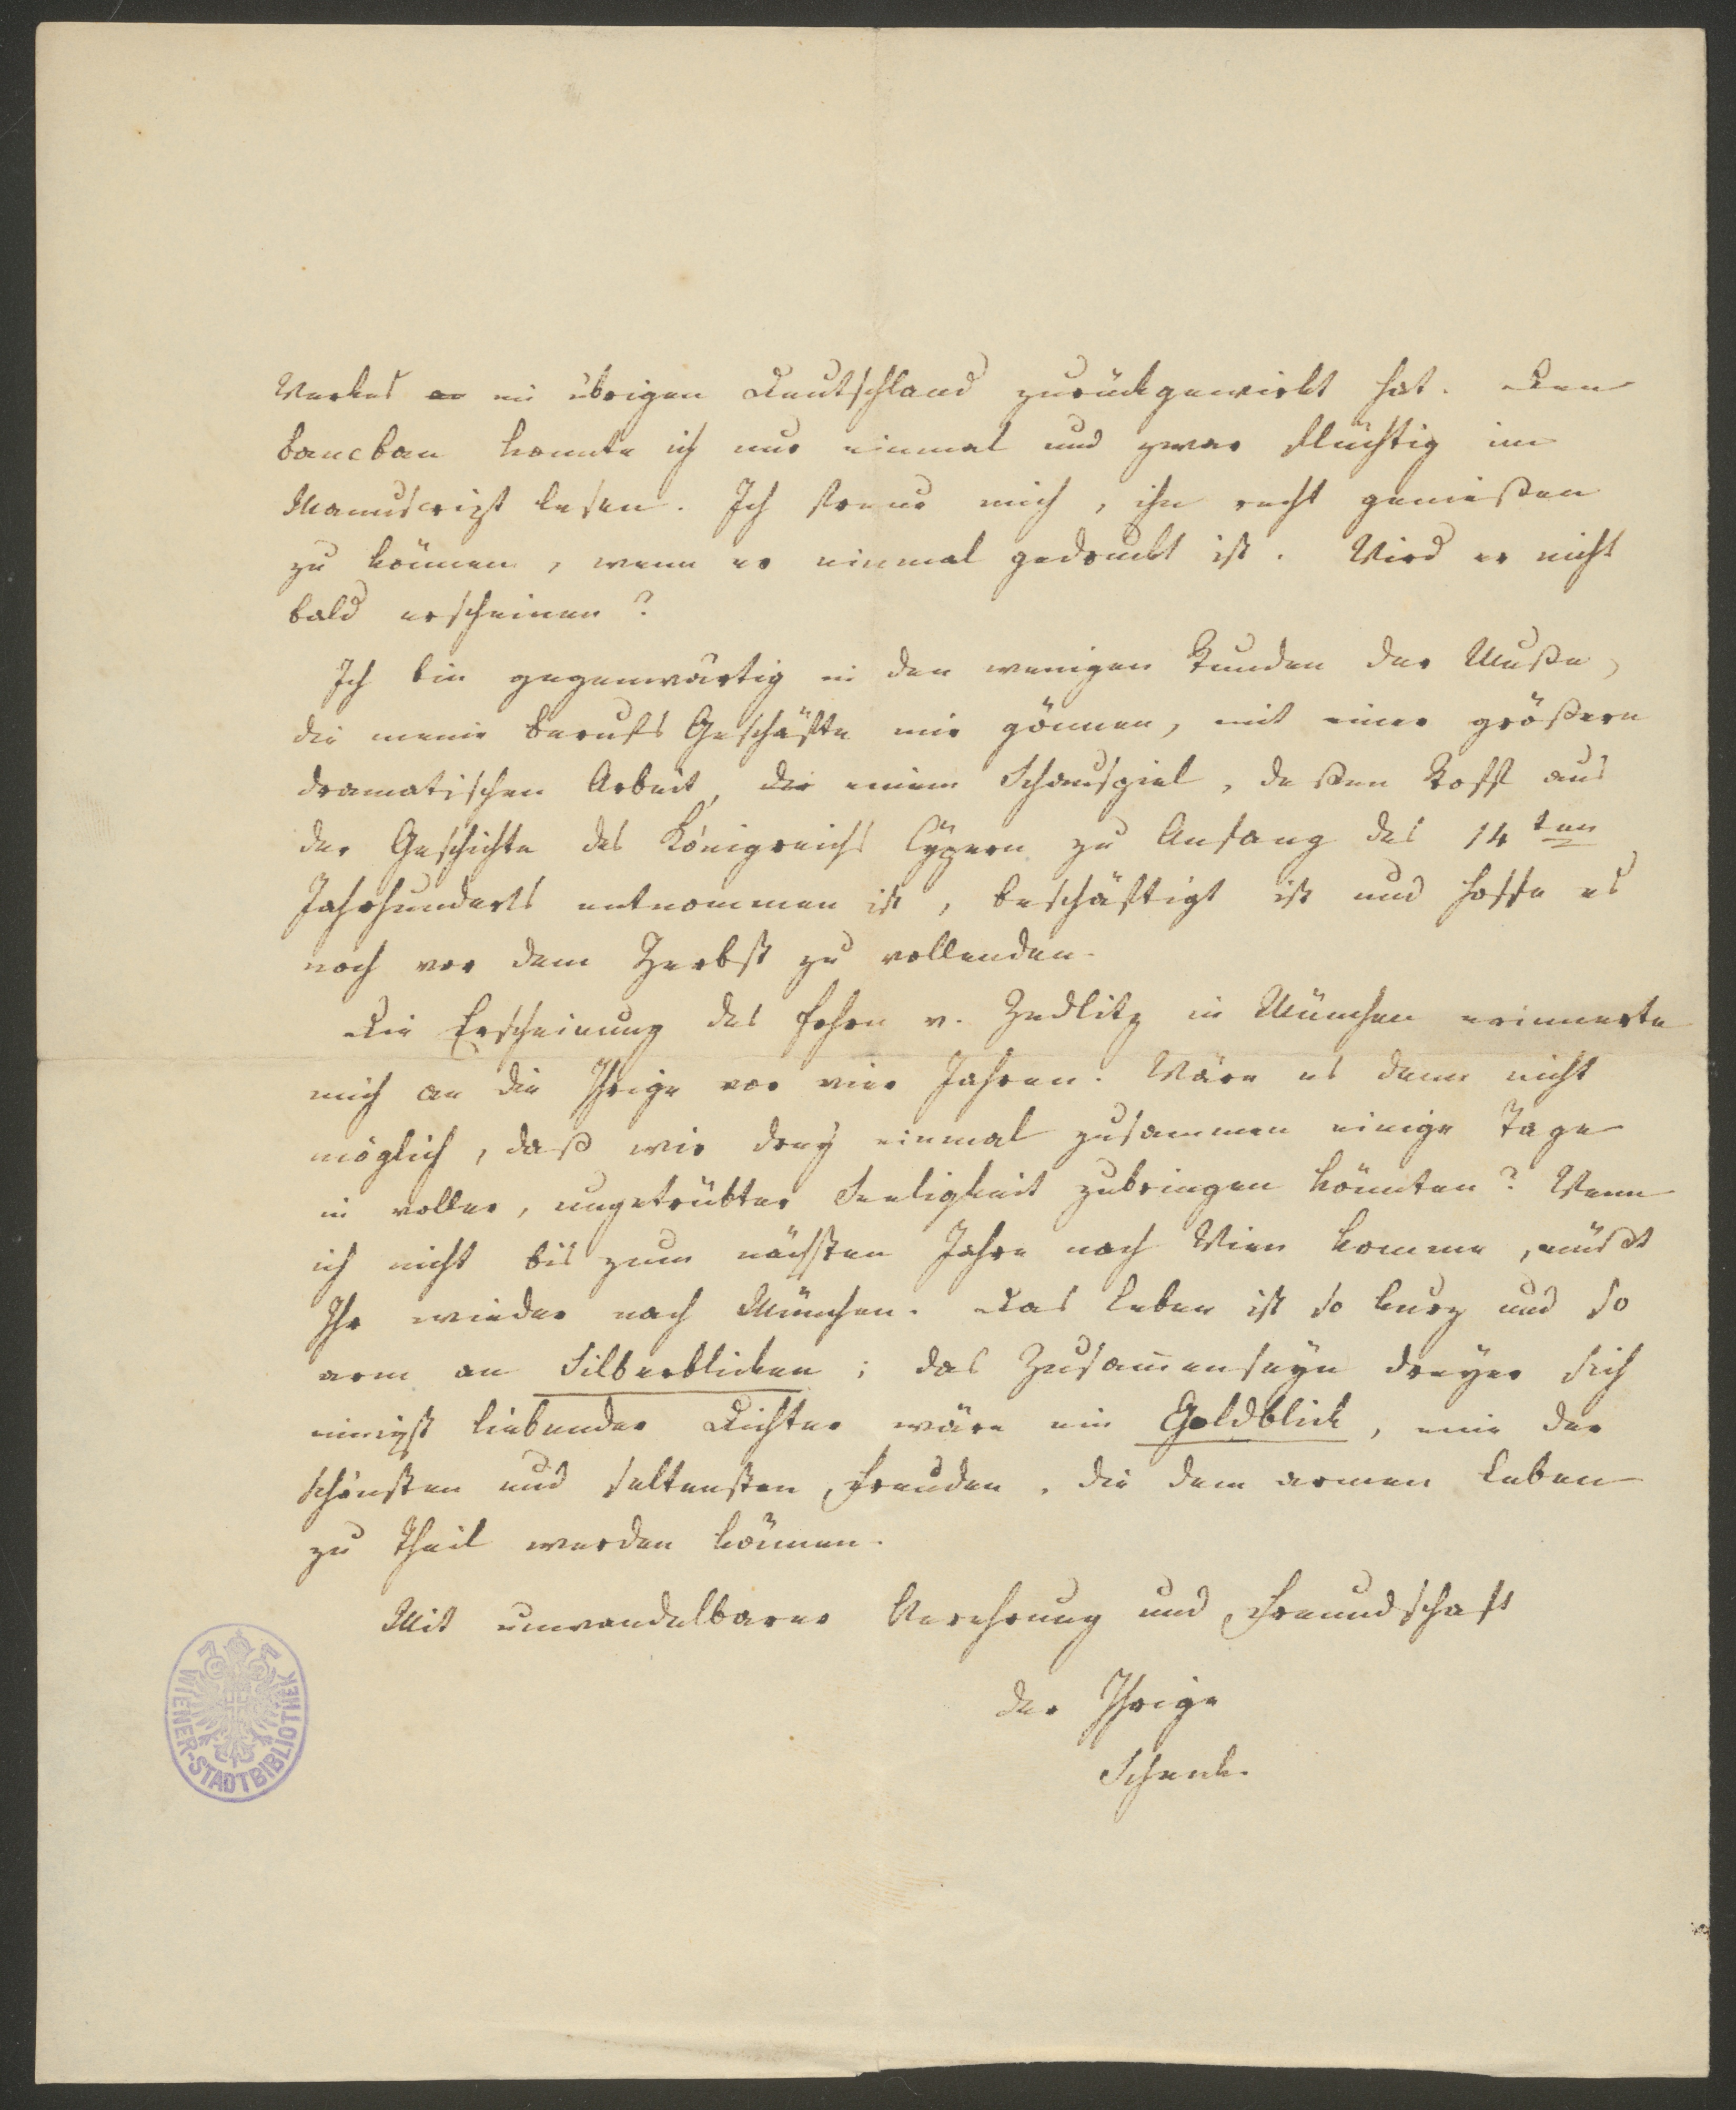 Werkes im übrigen Deutschland zurückgewirkt hat. Den
Bancban konnte ich nur einmal und zwar flüchtig im
Manuscript lesen. Ich freue mich, ihn recht genießen
zu können, wenn er einmal gedruckt ist. Wird er nicht
bald erscheinen?
Ich bin gegenwärtig in den wenigen Stunden der Muße,
die meine Berufs Geschäfte mir gönnen, mit einer größern
dramatischen Arbeit, die einem Schauspiel, deßen Stoff aus
der Geschichte des Königreichs Cypern zu Anfang des 14ten
Jahrhunderts entnommen ist, beschäftigt ist und hoffe es
noch vor dem Herbst zu vollenden.
Die Erscheinung des Frhrn v. Zedlitz in München erinnerte
mich an die Ihrige vor vier Jahren. Wäre es denn nicht
möglich, daß wir drey einmal zusammen einige Tage
in voller, ungetrübter Seeligkeit zubringen könnten? Wenn
ich nicht bis zum nächsten Jahre nach Wien komme, müßt
Ihr wieder nach München. Das Leben ist so kurz und so
arm an Silberblicken; das Zusam̅enseyn dreyer sich
innigst liebender Dichter wäre ein Goldblick, eine der
schönsten und seltensten Freuden, die dem armen Leben
zu Theil werden können.
Mit unwandelbarer Verehrung und Freundschaft
der Ihrige
Schenk.
WIENER-STADTBIBLIOTHEK